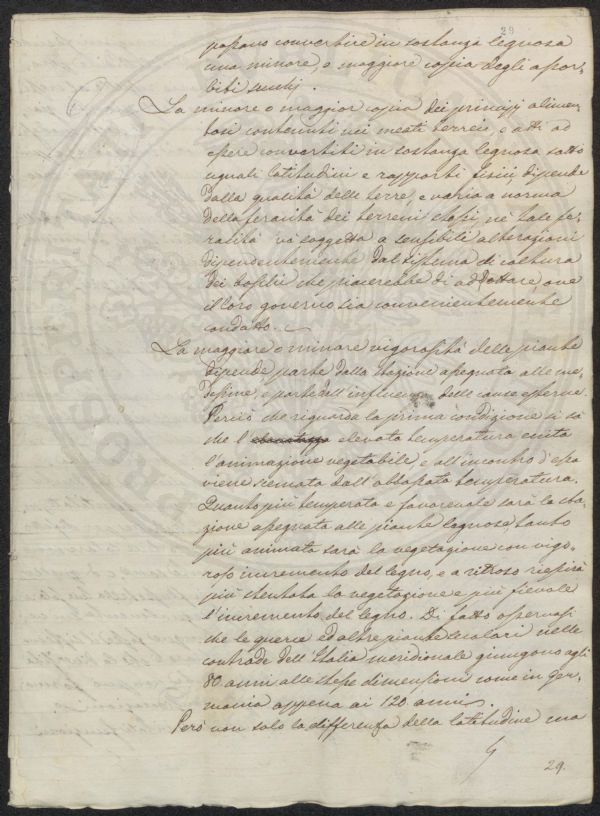 29
possano convertire in sostanza legnosa
una minore, o maggiore copia degli assor-
biti succhj.
La minore o maggior copia dei principj alimen-
tosi contenuti nei mesti terreis, e atti ad
essere convertiti in sostanza legnosa sotto
uguali latitudini e rapporti fisici, dipende
dalla qualità delle terre, e varia a norma
della feracità dei terreni stessi, nè tale fe-
racità và soggetta a sensibile alterazioni
dipendentemente dal sistema di coltura
dei boschi che piacerebbe di addottare ove
il loro governo sia convenientemente
condotto.
La maggiore o minore vigorosità delle piante
dipende parte dalla stazione assegnata alle me-
desime, e parte dall'influenza delle cause esterne.
Perciò che riguarda la prima condizione si sà
che l' elevata temperatura eccita
l'animazione vegetabile, e all'incontro d'essa
viene scemata dall'abbassata temperatura.
Quanto più temperata e favorevole sarà la sta-
zione assegnata alle piante legnose, tanto
più animata sarà la vegetazione con vigo-
roso incremento del legno, e a ritroso riescirà
più stentata la vegetazione e più fievole
l'incremento del legno. Di fatto osservasi
che le querce ed altre piante secolari nelle
contrade dell'Italia meridionale giungono agli
80 anni alle stesse dimensioni come in Ger-
mania appena ai 120 anni.
Però non solo la differenza della latitudine ma
29.